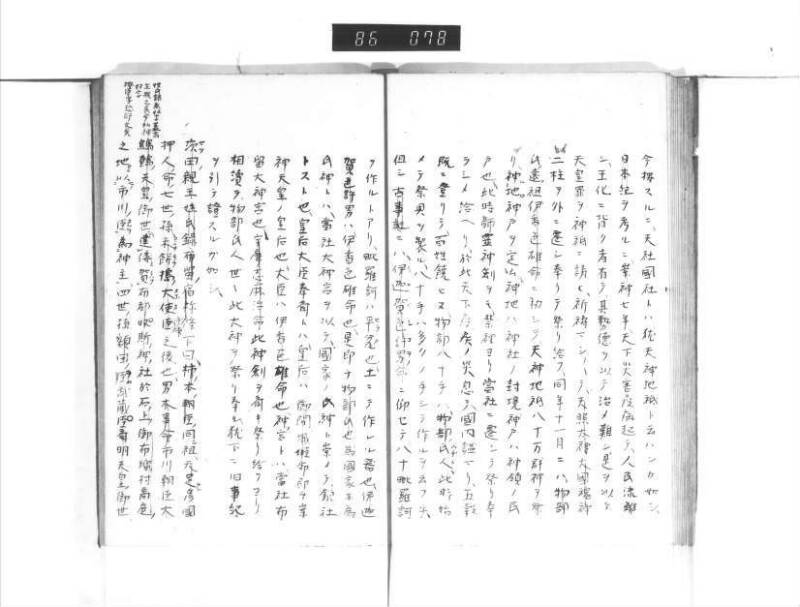 86 078
今按スルニ、天社國社トハ猶天神地祇ト云ハンカ如シ、
日本紀ヲ考ルニ崇神七年天下災害疫病起テ、人民流離
シ、王化ニ背ク者有テ其勢德ヲ以テ治メ難シ是ヲ以テ
天皇罪ヲ神祇ニ請ヒ祈禱シテ、天照大神大國魂神
二柱ヲ外ニ遷シ奉リテ祭リ給フ、同年十一月ニハ物部
氏遠祖伊香色雄命ニ初シテ天神地祇八十万群神ヲ祭
リ神地神戸ヲ定ム神地ハ神社ノ封境神戸ハ神領ノ民
戸也、此時師霊神剣ヲモ禁裡ヨリ當社ニ遷シテ祭リ奉
ラシメ給ヘリ、於此天下疫疾ノ災息テ國內謐マリ、五穀
既ニ登リテ百姓饒ヒヌ物部八十手ハ物部氏人此時始
メテ祭具ヲ製ル、八十手ハ多クノ手シテ作ルヲ云フ矣、
但シ古事記ニハ伊迦賀色許男命ニ仰セテ八十毗羅訶
ヲ作ルトアリ、毗羅訶ハ平瓮也、土ニテ作レル器也、伊迦
賀色許男ハ伊香色雄命也、是即チ物部氏也、爲國家爲
氏神トハ、當社大神宮ヲ以テ國家ノ氏神ト崇メテ齋社
トスト也、皇后大臣奉齋トハ皇后ハ御間城姫命即チ崇
神天皇ノ皇后也、大臣ハ伊香色雄命也、神宮トハ當社布
留大神宮也、宇摩志麻治命此神剣ヲ齋キ祭リ給フヨリ
相續ヲ物部氏人世々此大神ヲ祭リ奉ル、猶下ニ旧事紀
ヲ引テ證スルガ如シ、
次田親王姓氏錄布留宿祢條下曰、柿本朝臣同祖天足彥國
押人命七世孫米餅搗大使主之後也、男木事命男市川朝臣大
鷦鷯天皇御世達倭賀布都努斯神社於石上御布瑠村高庭
之地、以市川臣爲神主、四世孫額田臣武藏臣齊明天皇御世